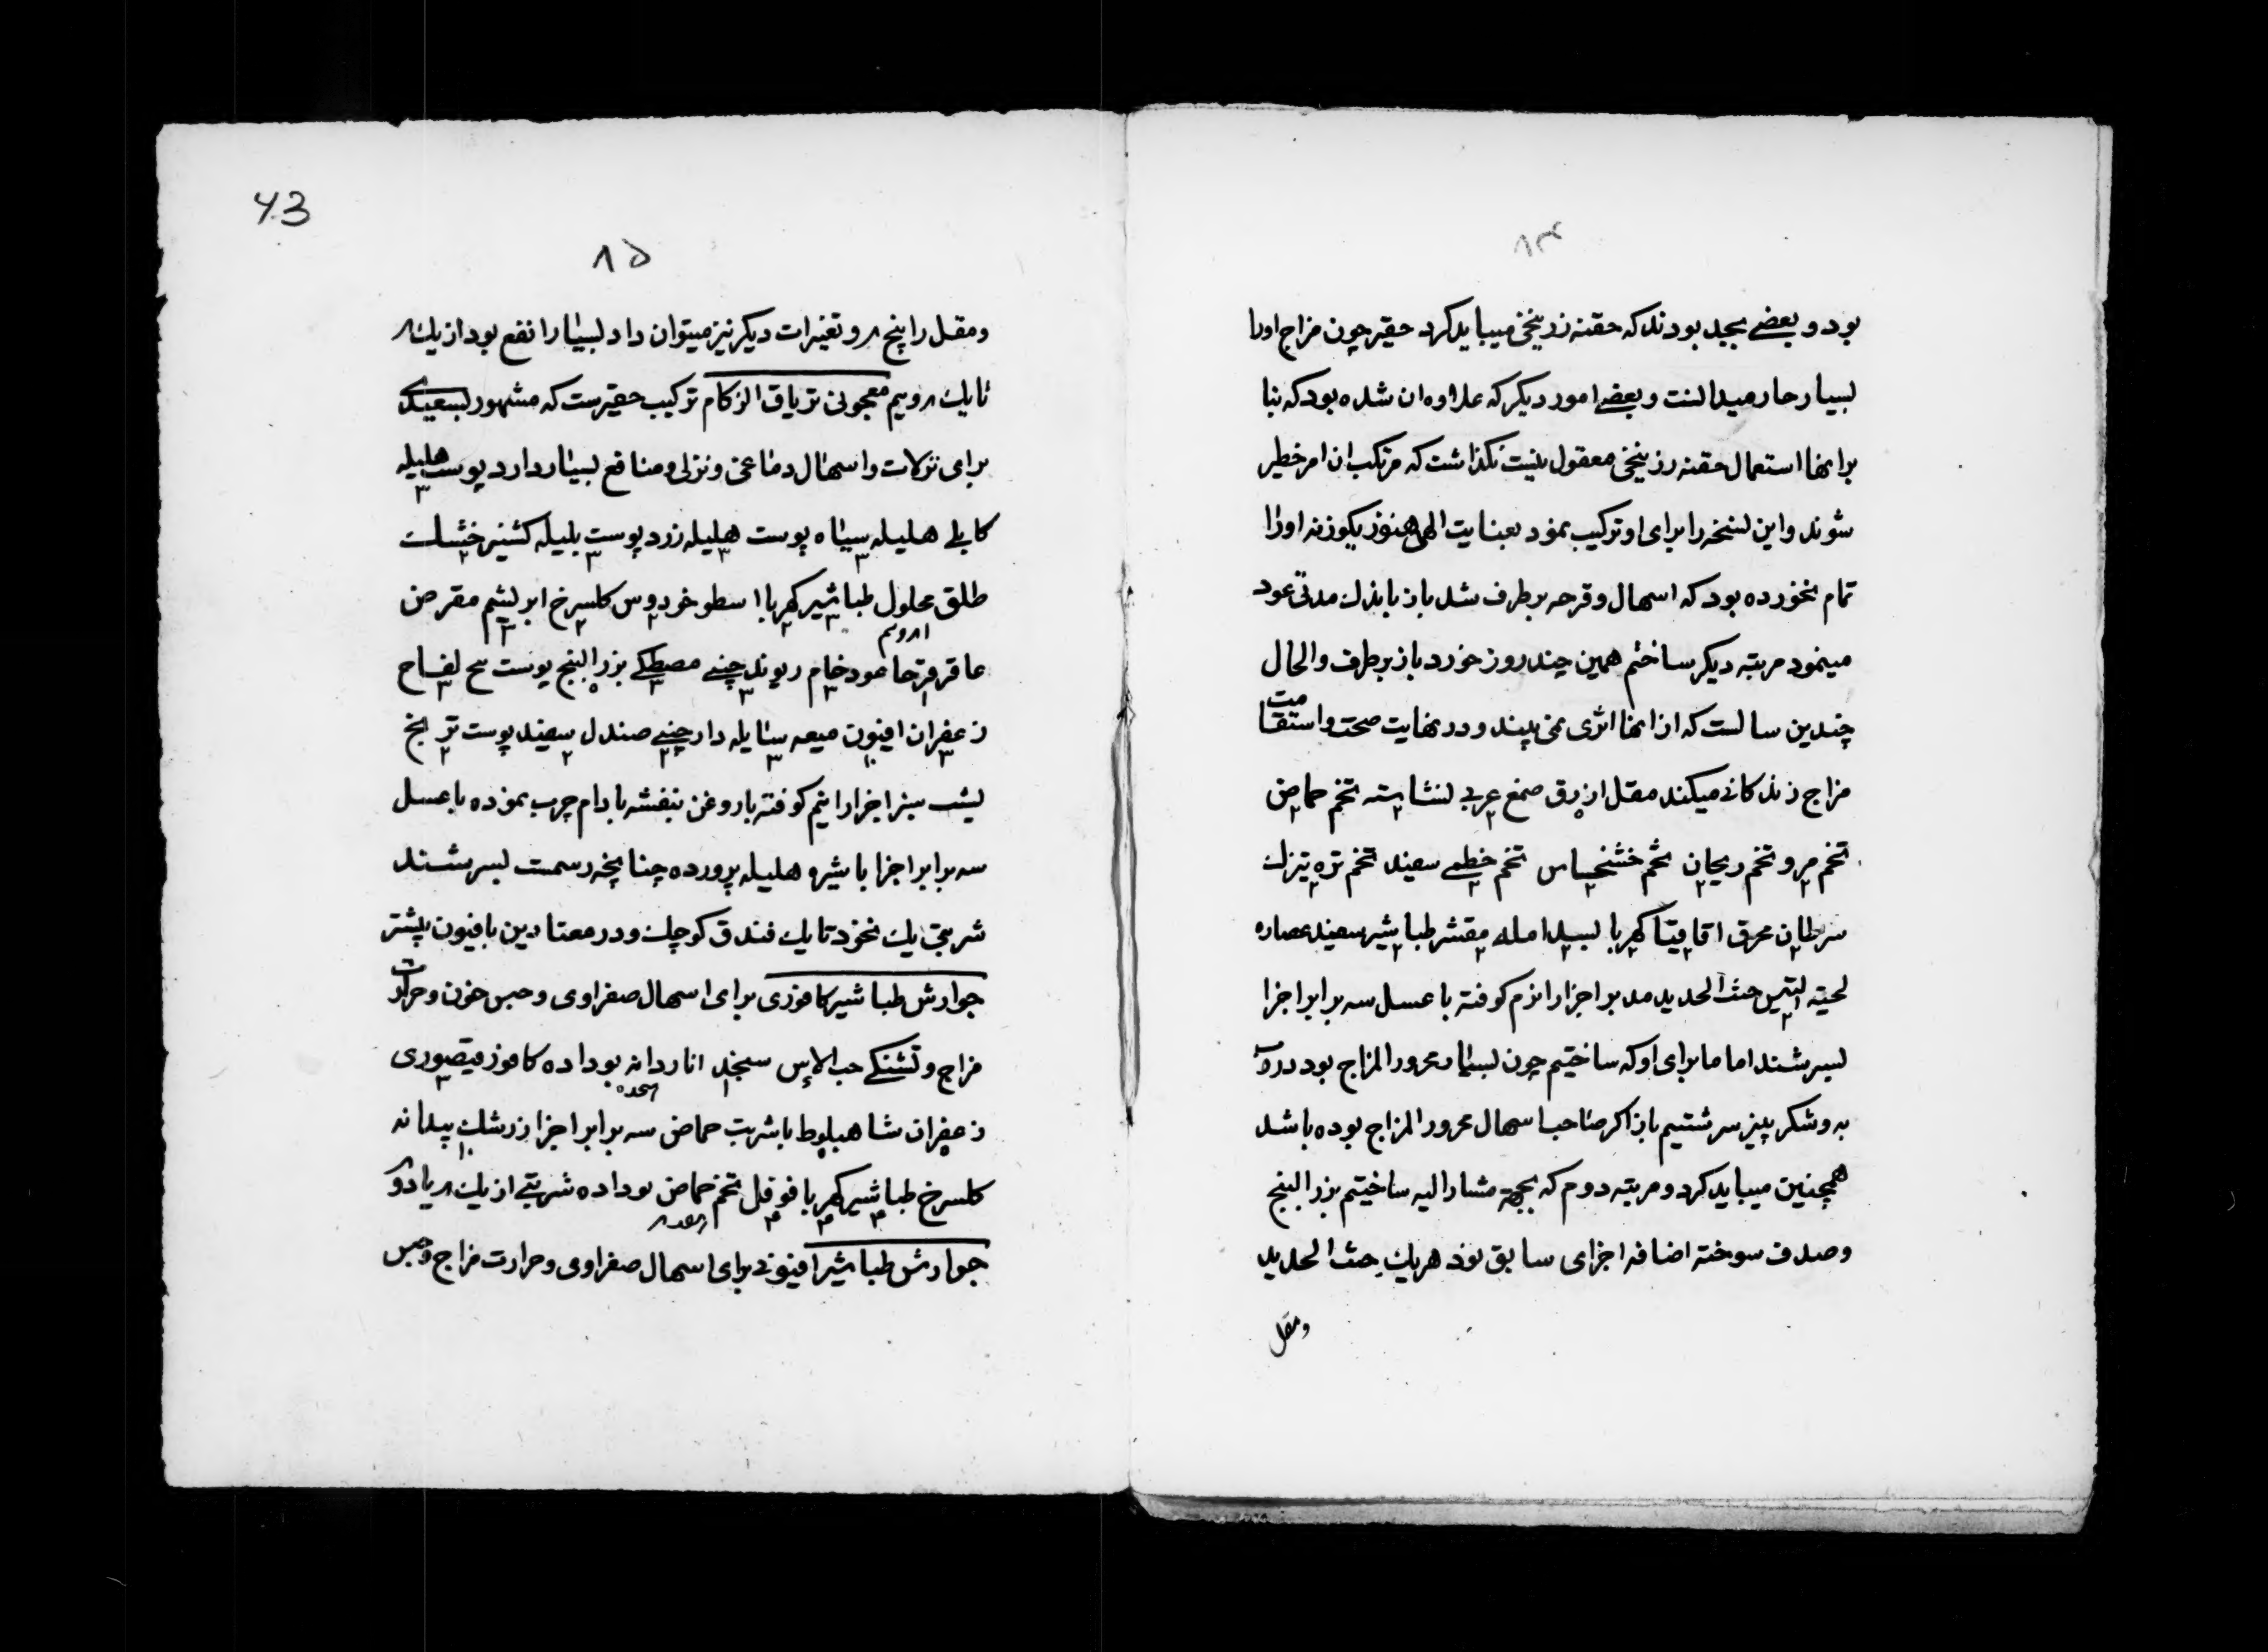 ۸۴
بود و بعضی بجد بودند که حقنه زرنیخی میباید کرد حقیر چون مزاج اورا
بسیار حار میدانست و بعضی امور دیگر که علاوه ان شده بود که بنا
برانها استعمال حقنه زرنیخی معقول نیست نکذاشت که مرتکب ان امر خطیر
شوند و این نسخه را برای او ترکیب نمود بعنایت الهی هنوز یکوزنه اورا
تمام نخورده بود که اسهال و قرحه برطرف شد باز باندک مدتی عود
مینمود مرتبه دیکر ساختم همین چند روز خورد باز برطرف و الحال
چندین سالست که از انها اثری نمی بیند و در نهایت صحت و استقامت
مزاج زندکانی میکند مقل ازرق صمغ عربی نشاسته تخم حماض
تخم مرو تخم ریحان تخم خشخاش تخم خطمی سفید تخم تره تیزک
سرطان محرق اقاقیا کهربا بسد امله مقشر طباشیر سفید عصاره
لحیته التیس خبث الحدید مدبر اجزارا نرم کوفته با عسل سه برابر اجزا
بسرشند اما ما برای او که ساختیم چون بسیار محرور المزاج بود در
به و شکر نیز سرشتیم باز اکر صاحب اسهال محرور المزاج بوده باشد
همچنین میباید کرد و مرتبه دوم که بجهة مشار الیه ساختیم بزر البنج
و صدف سوخته اضافه اجزای سابق نمود هریک خبث الحدید
و مقل
43
۸۵
و مقل را پنج م و تغیرات دیکر نیز میتوان داد بسیار نافع بود از یک م
تا یک م و نیم معجونی تریاق الزکام ترکیب حقیرست که مشهور بسعیدی
برای نزلات و اسهال دماغی و نزلی و منافع بسیار دارد پوست هلیله
کابلی هلیله سیاه پوست هلیله زرد پوست بلیله کشنیز خشک
طلق محلول طباشیر کهربا اسطوخودوس کلسرخ ابریشم مقرض
عاقرقرحا عود خام ریوند چینی مصطکی بزر البنج پوست بیخ لفاح
زعفران افیون میعه سایله دارچینی صندل سفید پوست ترنج
یشب سبز اجزارا نیم کوفته باروغن بنفشه بادام چرب نموده با عسل
سه برابر اجزا با شیره هلیله پرورده چنانچه رسمست بسرشند
شربتی یک نخود تا یک فندق کوچک و در معتادین بافیون بیشتر
جوارش طباشیر کافوری برای اسهال صفراوی و حبس خون و حرارت
مزاج و تشنکی حب الاس سنجد اناردانه بوداده کافور قیصوری
زعفران شاهبلوط باشربت حماض سه برابر اجزا زرشک بیدانه
کلسرخ طباشیر کهربا فوفل تخم حماض بوداده شربتی از یک م یا دو
جوارش طباشیر افیونی برای اسهال صفراوی و حرارت مزاج و حبس